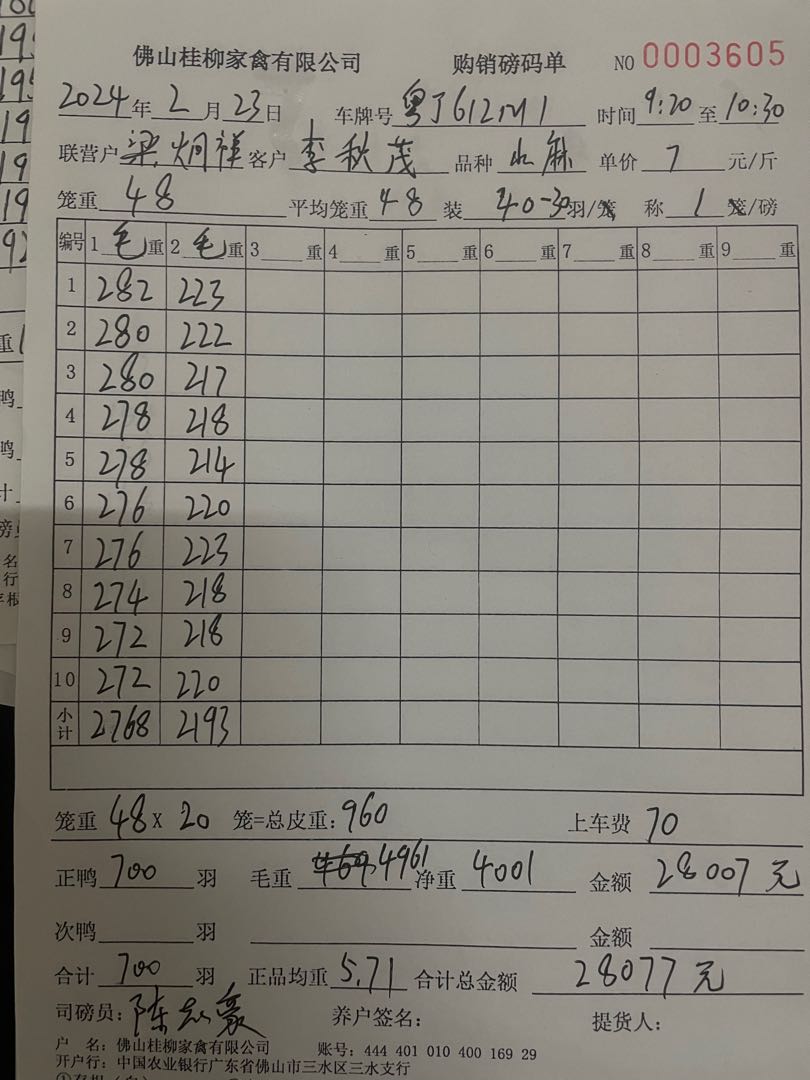 佛山桂柳家禽有限公司 购销磅码单 NO 0003605
2024年 2 月 23日 车牌号 粤J612M1 时间 9:20 至 10:30
联营户 梁炯祥 客户 李秋茂 品种 水麻 单价 7 元/斤
笼重 48 平均笼重 48 装 40-30羽/笼 称 1 笼/磅
编号 1 毛 重 2 毛 重 3 重 4 重 5 重 6 重 7 重 8 重 9 重
1 282 223
2 280 222
3 280 217
4 278 218
5 278 214
6 276 220
7 276 223
8 274 218
9 272 218
10 272 220
小计 2768 2193
笼重 48 X 20 笼=总皮重: 960 上车费 70
正鸭 700 羽 毛重 4961 净重 4001 金额 28007 元
次鸭 羽 金额
合计 700 羽 正品均重 5.71 合计总金额 28077 元
司磅员: 陈志豪 养户签名: 提货人:
户 名: 佛山桂柳家禽有限公司 账号: 444 401 010 400 169 29
开户行: 中国农业银行广东省佛山市三水区三水支行